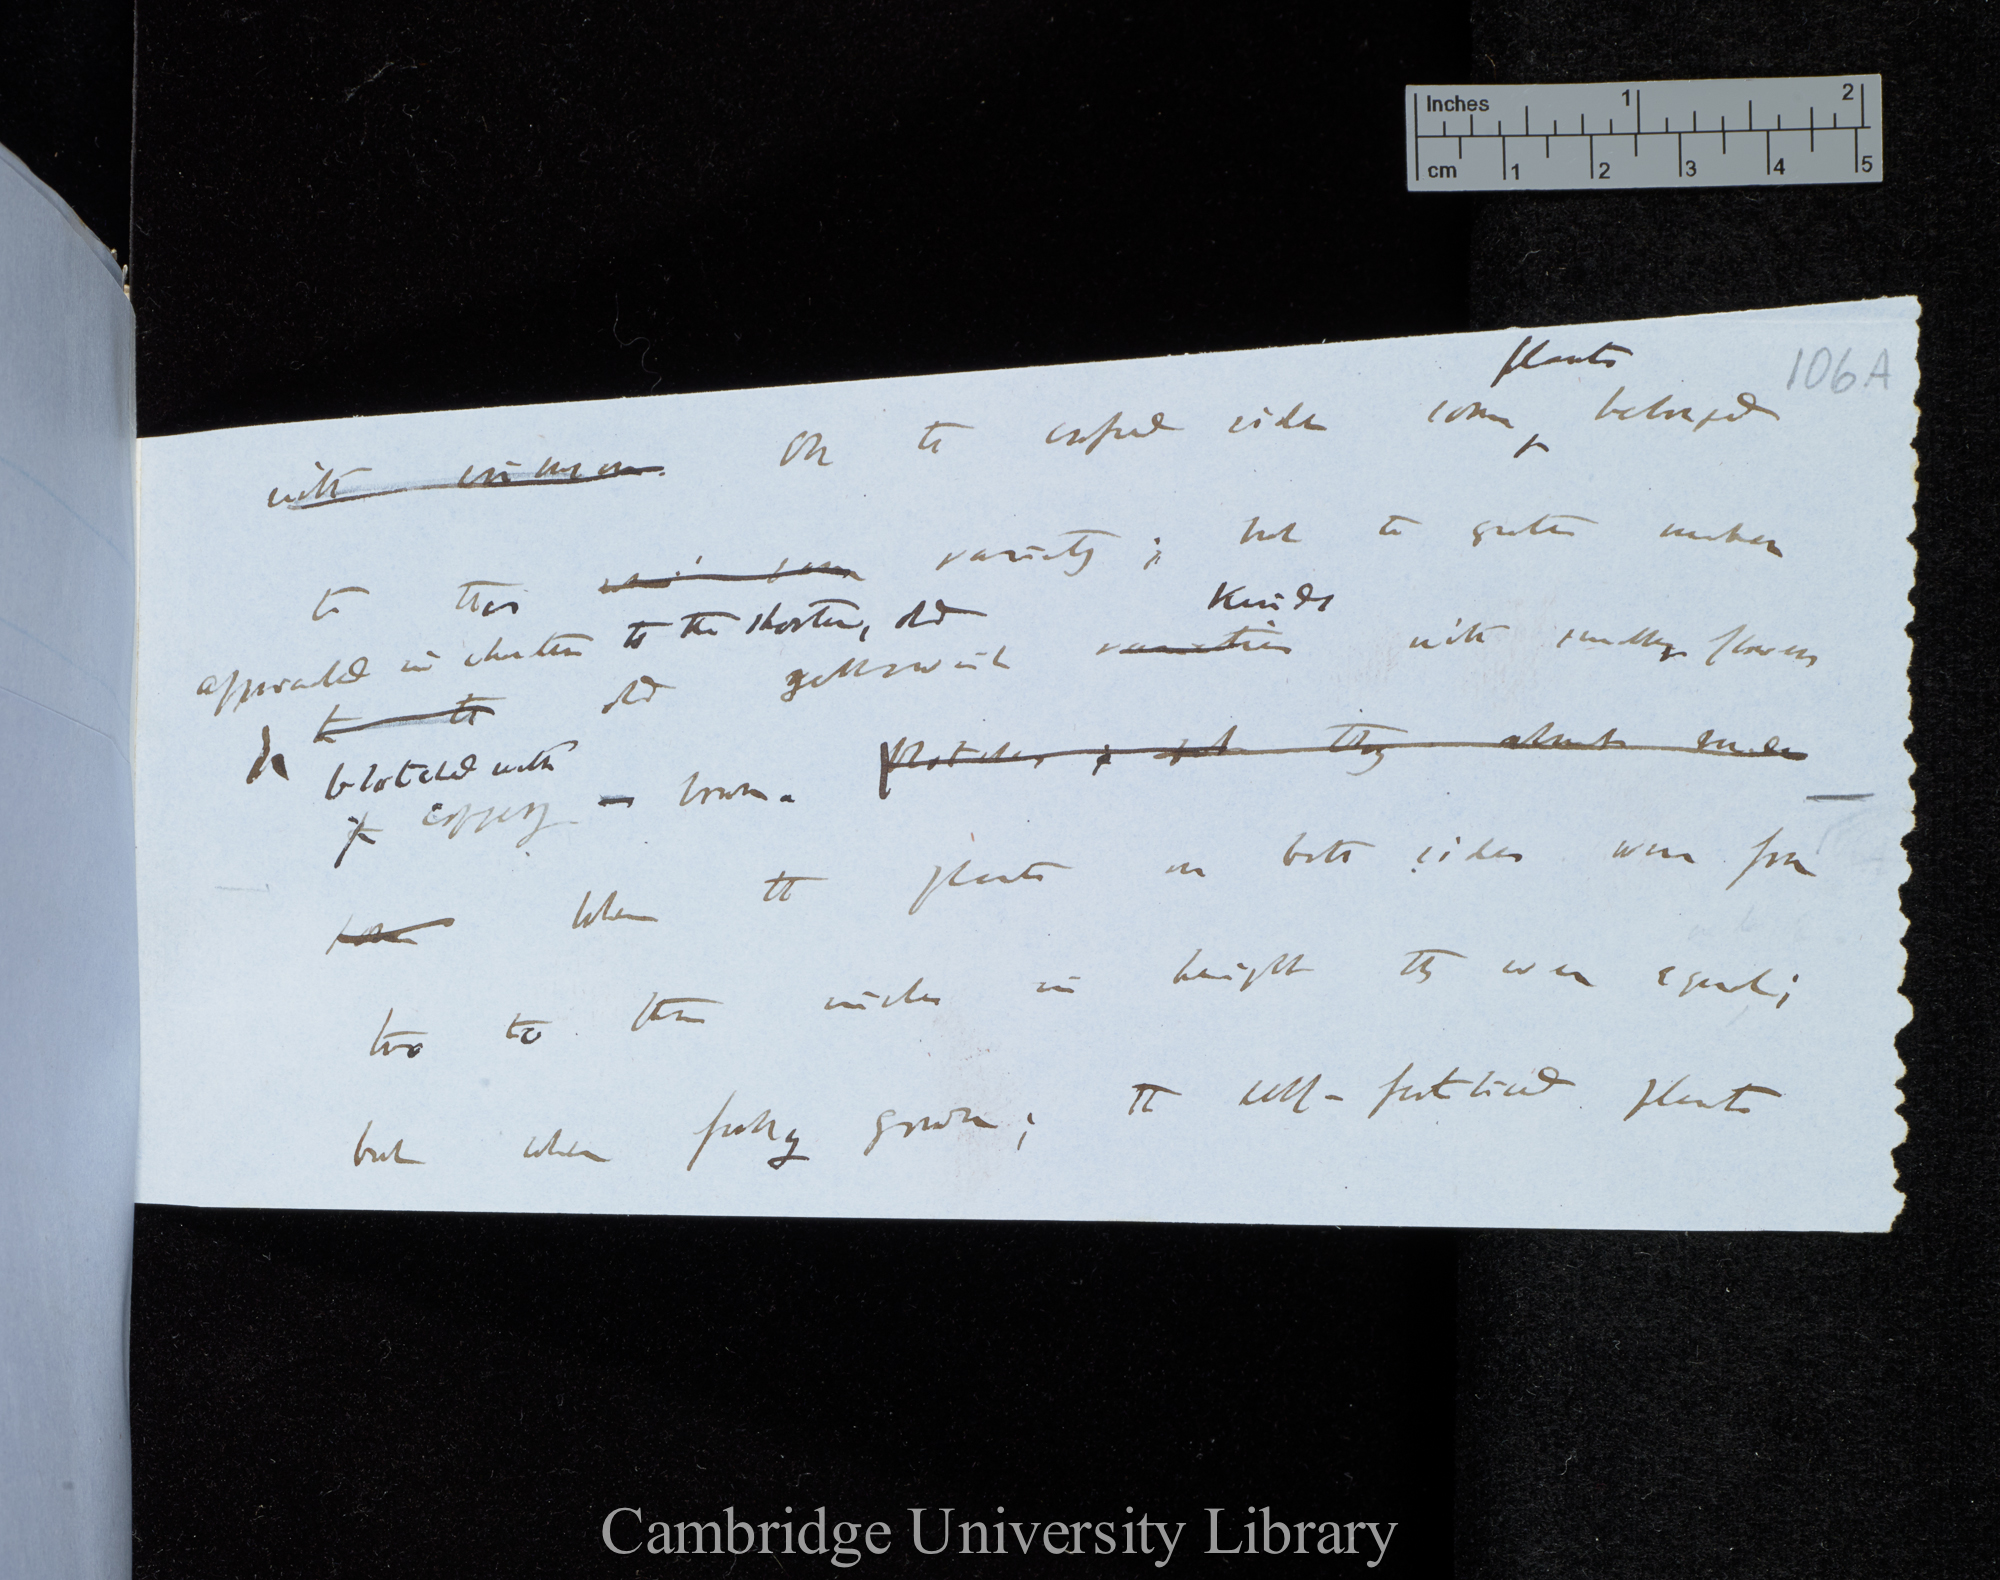 Inches 1 2
cm 1 2 3 4 5
106A
plants
with crimson. On the crossed side some belonged
to this variety; but the greater number
approached in character to the shorter, old
kinds
to the old yellowish varieties with smallish flowers
blotched with
coppery - brown. blotches, & they almost
When the plants on both sides were from
two to three inches in height they were equal;
but when fully grown; the self-fertilised plants
Cambridge University Library